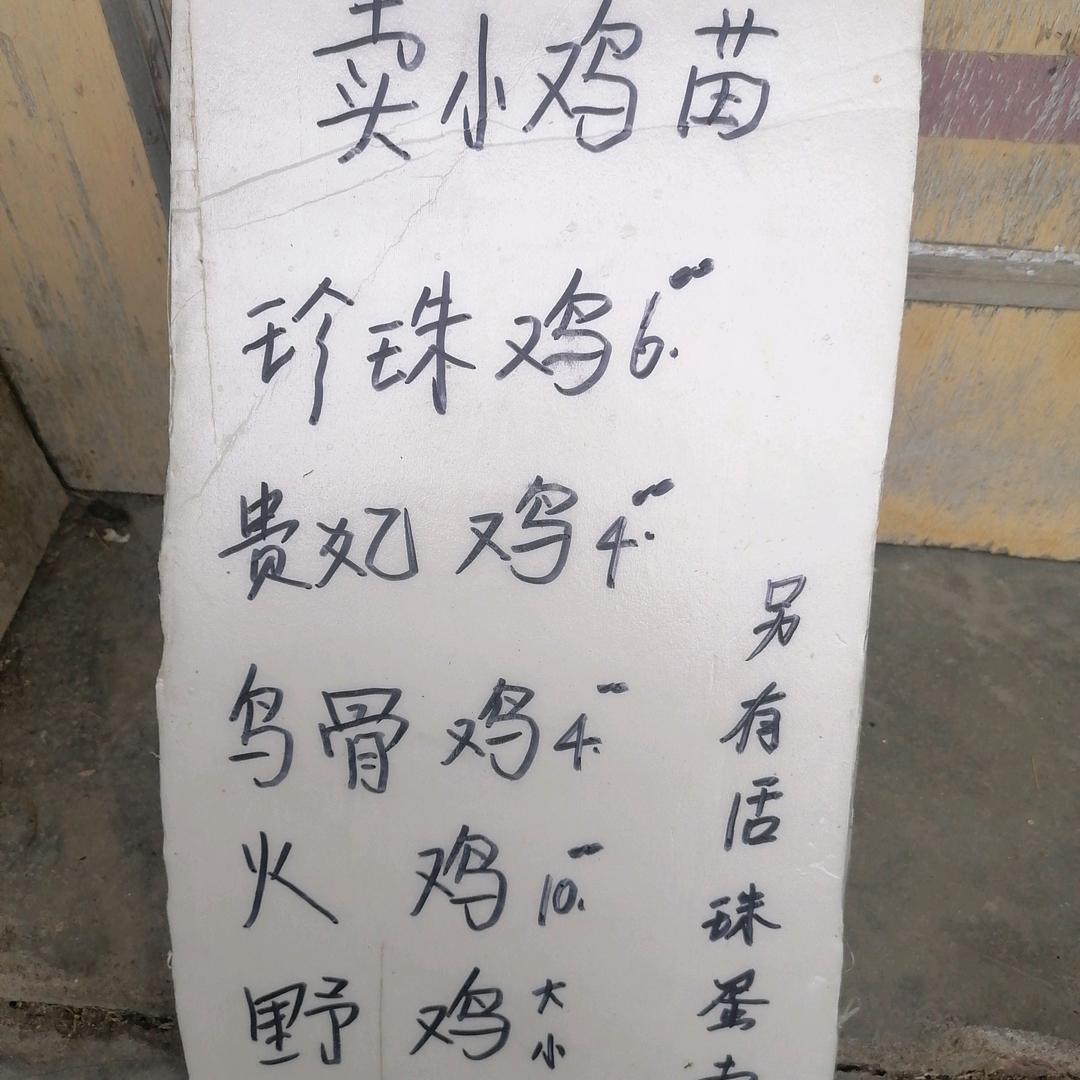 卖小鸡苗
珍珠鸡6.
贵妃鸡4.
乌骨鸡4.
火鸡10.
野鸡大小
另有活珠蛋卖